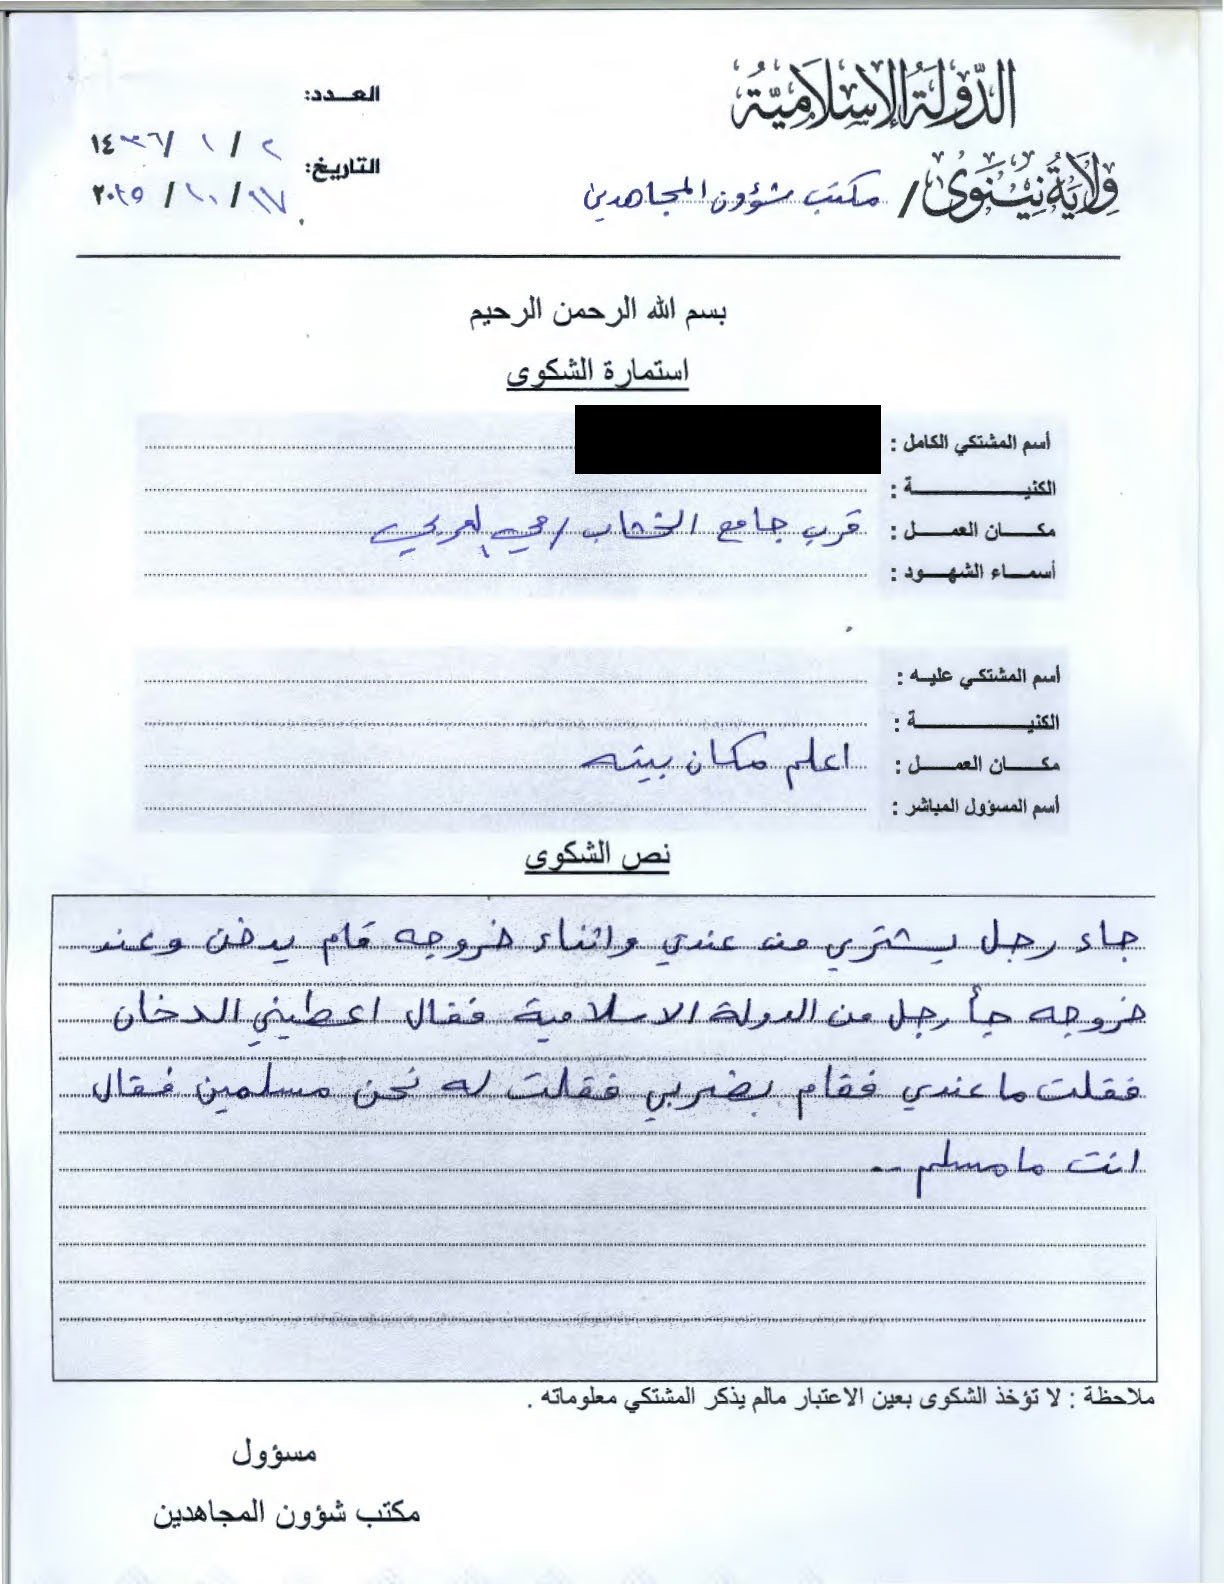 الدولة الإسلامية
ولاية نينوى / مكتب شؤون المجاهدين
العدد:
التاريخ:
٢ / ١ / ١٤٣٦
١٧ / ١٠ / ٢٠١٥
بسم الله الرحمن الرحيم
استمارة الشكوى
أسم المشتكي الكامل :
الكنية :
مكان العمل : قرب جامع الخشاب / حي العربي
أسماء الشهود :
أسم المشتكي عليه :
الكنية :
مكان العمل : اعلم مكان بيته
أسم المسؤول المباشر :
نص الشكوى
جاء رجل يشتري من عندي واثناء خروجه قام يدخن وعند
خروجه جأ رجل من الدولة الاسلامية فقال اعطيني الدخان
فقلت ما عندي فقام بضربي فقلت له نحن مسلمين فقال
انت ما مسلم ..
ملاحظة : لا تؤخذ الشكوى بعين الاعتبار مالم يذكر المشتكي معلوماته .
مسؤول
مكتب شؤون المجاهدين